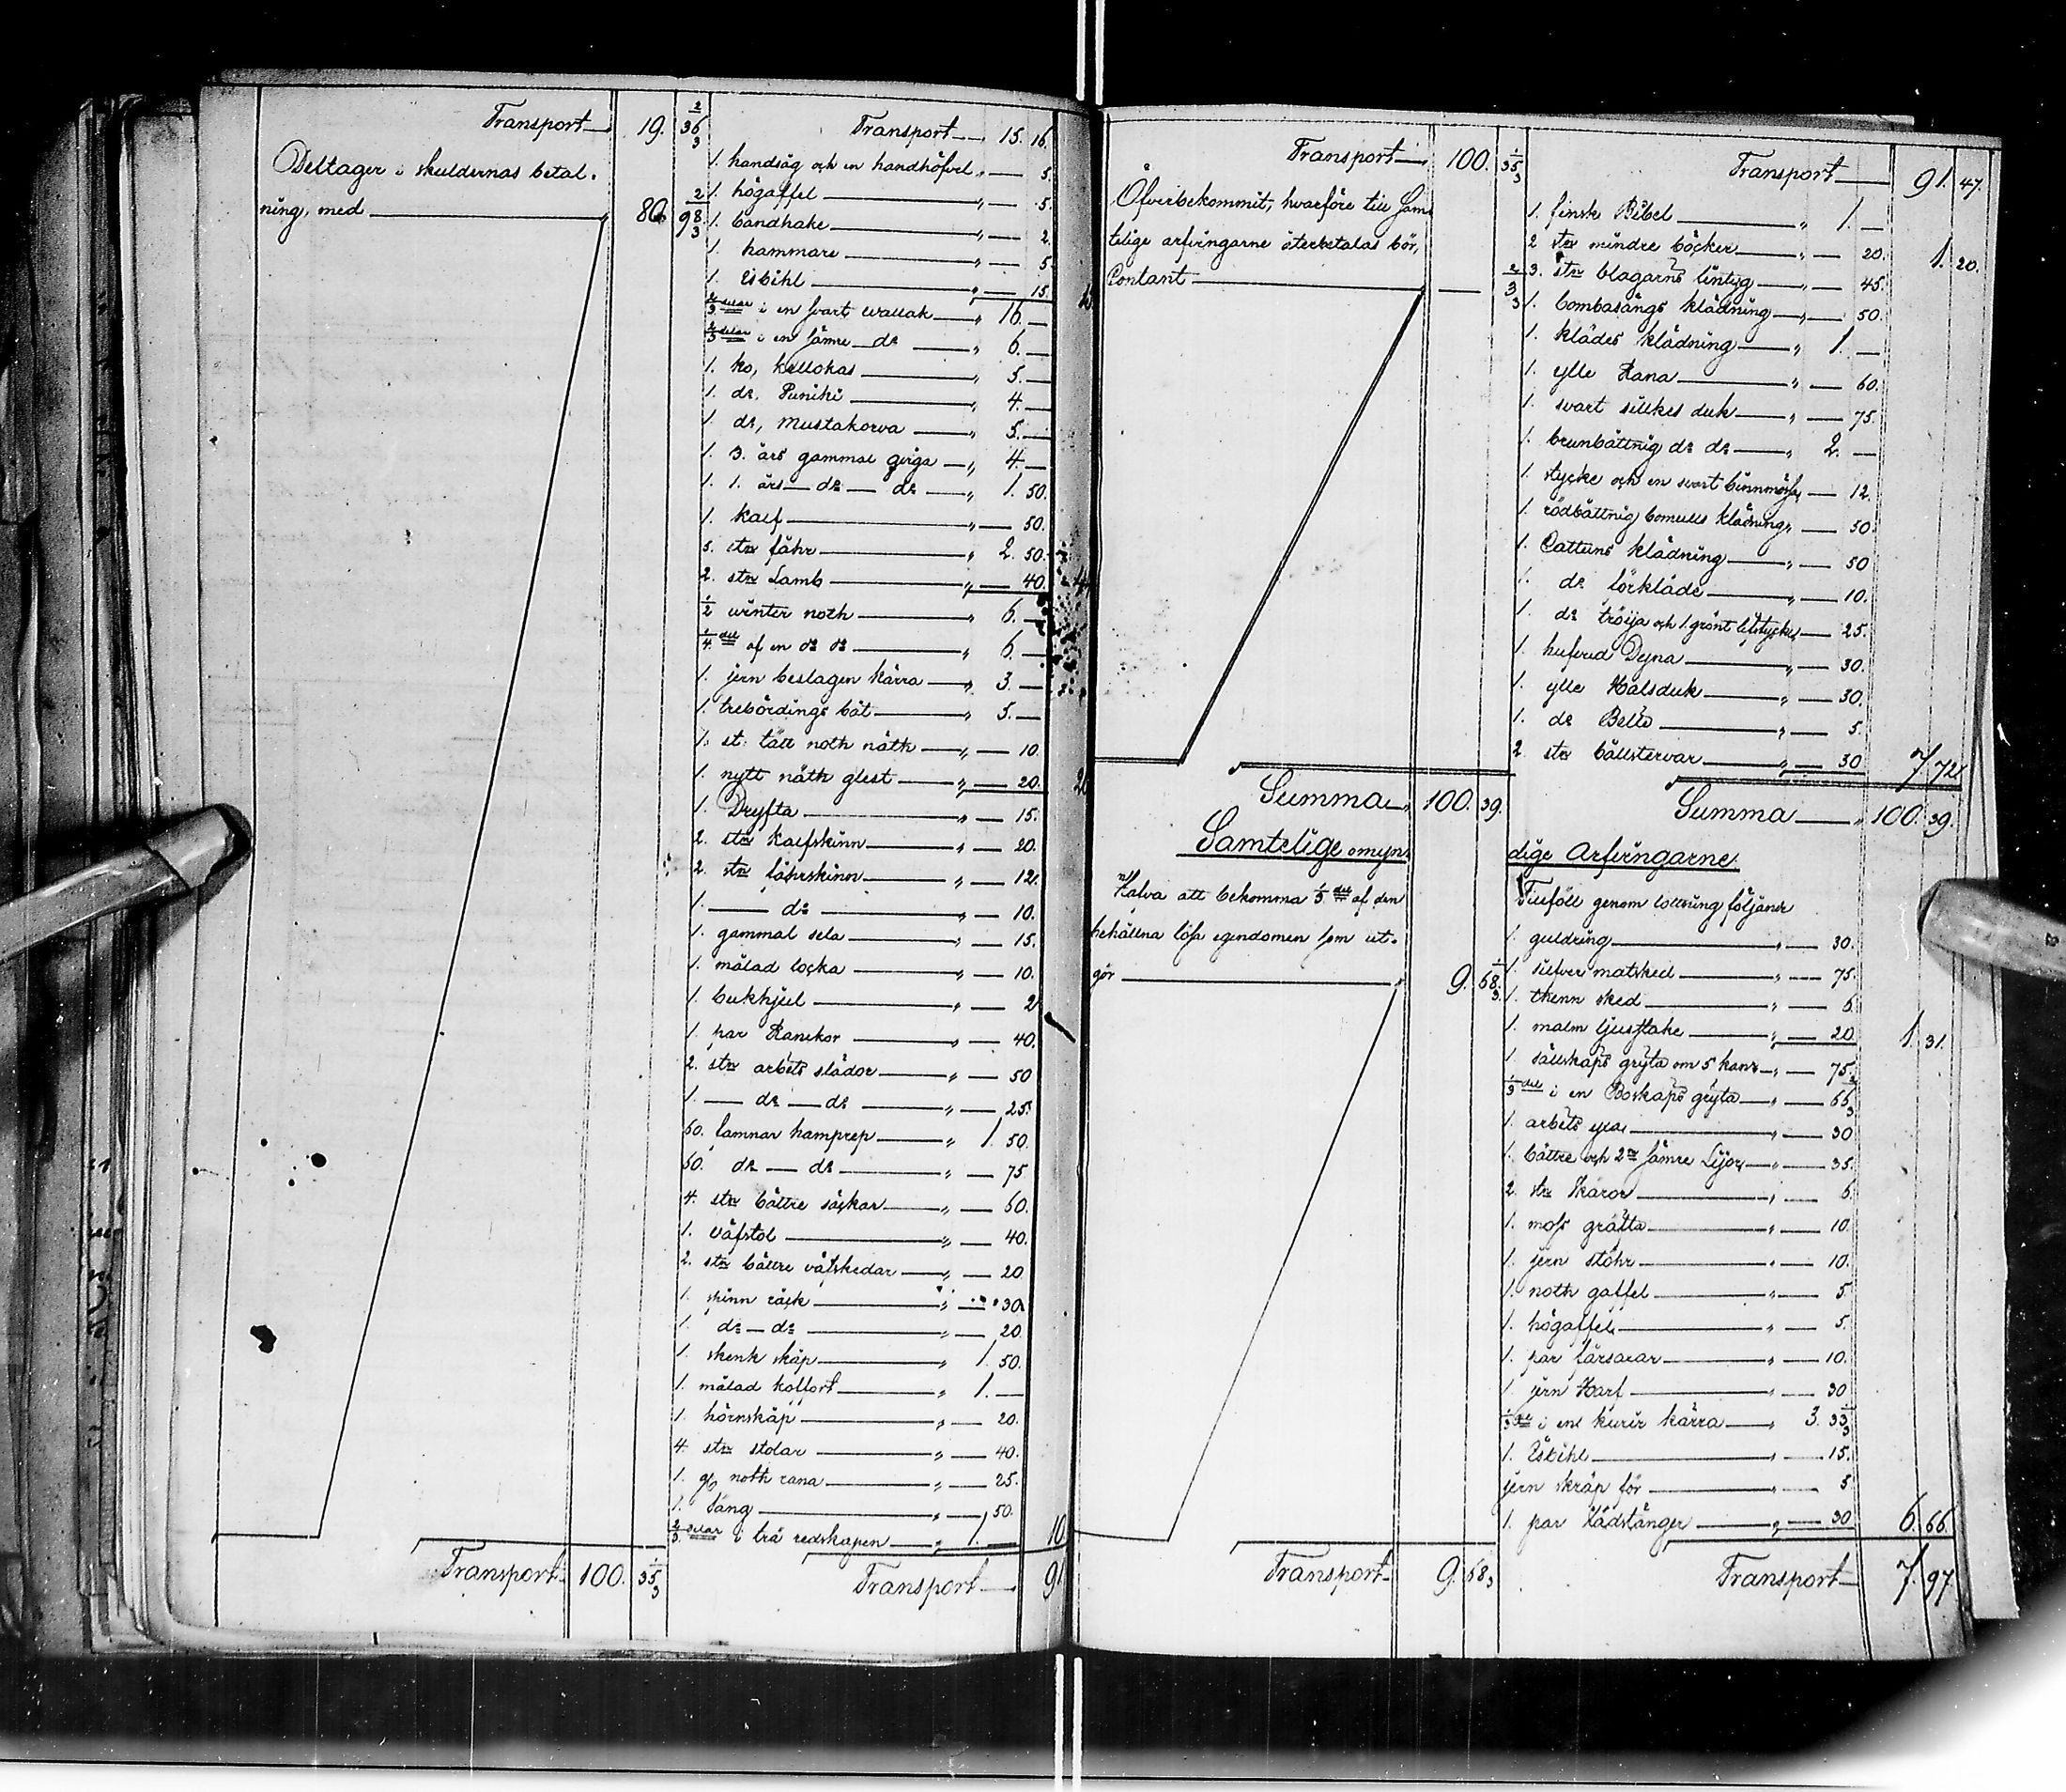 Transport 19. 36 2/3
Deltager i skuldernas betal-
ning, med 80. 98 2/3
Transport 100. 35 1/3
Transport 15. 16.
1. handsåg och en handhöfvel " — 5.
1. högaffel " — 5.
1. bandhake " — 2.
1. hammare " — 5.
1. Isbihl " — 15.
2/3 delar i en svart wallak " 16. —
2/3 delar i en sämre do " 6. —
1. ko, kellokas " 5. —
1. do, Puniki " 4. —
1. do, Mustakorva " 5. —
1. 3. års gammal qviga " 4. —
1. 1. års do do " 1. 50.
1. kalf " — 50.
5. str fåhr " 2. 50.
2. str Lamb " — 40.
1/2 winter noth " 6. —
1/4 del af en do do " 6. —
1. jern beslagen kärra " 3. —
1. trebördings båt " 5. —
1. st. tätt noth näth " — 10.
1. nytt näth glest " — 20.
1. Dryfta " — 15.
2. str Kalfskinn " — 20.
2. str fåhrskinn " — 12.
1. — do " — 10.
1. gammal sela " — 15.
1. målad locka " — 10.
1. bukhjul " — 2
1. par Ranckor " — 40.
2. str arbets slädor " — 50
1. — do — do " — 25.
60. famnar hamprep " 1. 50.
60. do — do " — 75
4. str bättre säckar " — 60.
1. väfstol " — 40.
2. str bättre väfskedar " — 20.
1. spinn råck " — 30.
1. do — do " — 20.
1. skenk skåp " 1. 50.
1. målad koffort " 1. —
1. hörnskåp " — 20.
4. str stolar " — 40.
1. noth rana " — 25.
1. Säng " — 50.
2/3 delar i trä redskapen " 1. — 10
Transport 91
Transport 100. 35 1/3
Öfverbekommit, hvarföre till Sam-
telige arfvingarne återbetalas bör,
Contant — 3 2/3
Summa 100. 39.
Samtelige omyn-
Halva att bekomma 1/3 del af den
behållna lösa egendomen som ut-
gör 9. 68 1/3
Transport 9. 68 1/3
Transport 91. 47.
1. finsk Bibel " 1. —
2 str mindre böcker " — 20. 1. 20.
3. str blagarns lintyg " — 45.
1. bombasängs klädning " — 50.
1. klädes klädning " 1. —
1. ylle Rana " — 60.
1. svart silkes duk " — 75.
1. brunbåttnig do do " 2. —
1. stycke och en svart binnmössa — 12.
1. rödbåttnig bomulls klädning " — 50
1. Cattuns klädning " — 50
1. do förkläde " — 10.
1. do tröija och 1 grönt lifstycke — 25.
1. hufvud Dyna " — 30.
1. ylle Halsduk " — 30.
1. do Bälte " — 5.
2 str bållstervar " — 30 7. 72.
Summa " 100. 39.
dige Arfvingarne.
Tillföll genom lottning följande
1. guldring " — 30.
1. silfver matsked " — 75.
1. thenn sked " — 6.
1. malm ljusstake " — 20. 1. 31.
1. sällskaps gryta om 5 kanr " — 75.
1/3 del i en Boskaps gryta " — 66 2/3
1. arbets yxa " — 30
1. bättre och 2ne sämre Lijor " — 35.
2. str skäror " — 6.
1. moss grätta " — 10.
1. jern stöhr " — 10.
1. noth gaffel " — 5.
1. högaffel " — 5.
1. par fårsaxar " — 10.
1. jern Harf " — 30
1/3 del i en kurir kärra " 3. 33 1/3
1. Isbihl " — 15.
jern skräp för " — 5.
1. par Hådstänger " — 30 6. 66.
Transport 7. 97.